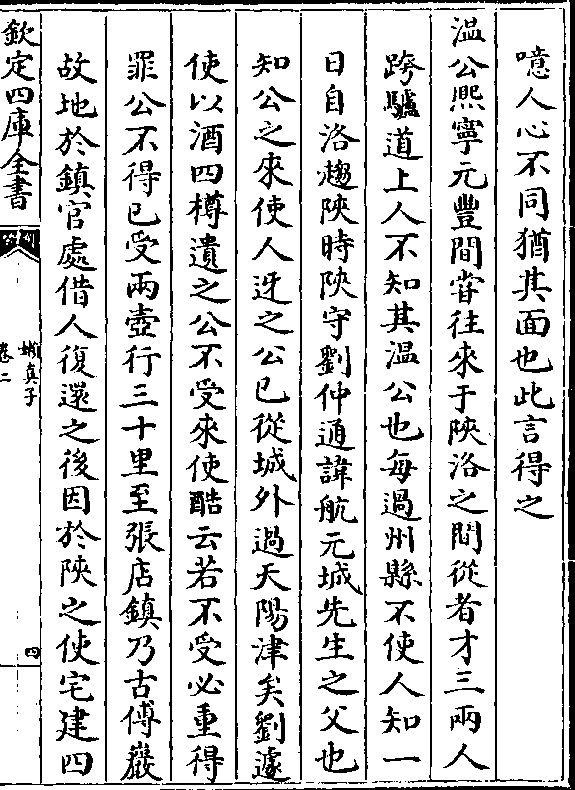 噫人心不同猶其面也此言得之
温公熙寧元豐間甞往來于陝洛之間從者才三兩人
跨驢道上人不知其温公也每過州縣不使人知一
日自洛趨陝時陝守劉仲通諱航元城先生之父也
知公之來使人迓之公已從城外過天陽津矣劉遽
使以酒四樽遺之公不受來使酷云若不受必重得
罪公不得已受兩壺行三十里至張店鎮乃古傅巖
故地於鎮官處借人復還之後因於陝之使宅建四
欽定四庫全書
嬾真子
卷二
四